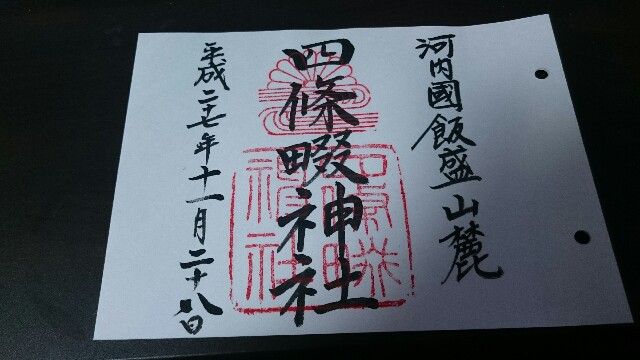 河内國飯盛山麓
四條畷神社
平成二十七年十一月二十八日
四條畷神社